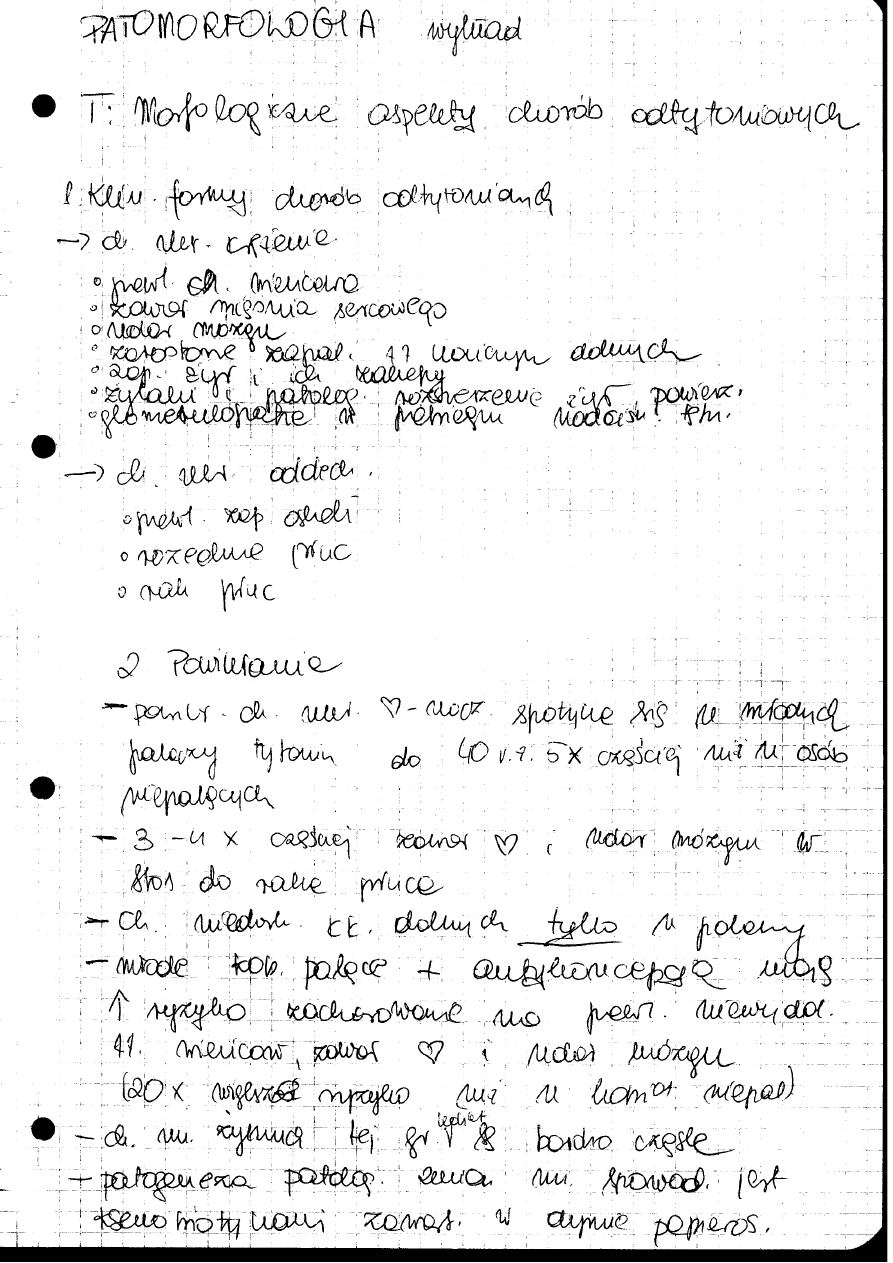 PATOMORFOLOGIA wykład
T: Morfologiczne aspekty chorób odtytoniowych
1 Klin. formy chorób odtytonianych
→ ch. ukł. krążenia
◦ przewl. ch. wieńcowa
◦ zawał mięśnia sercowego
◦ udar mózgu
◦ zarostowe zapal. tt kończyn dolnych
◦ zap. żył i ich zakrzepy
◦ żylaki i patolog. rozszerzenie żył powierz.
◦ glomerulopatie w przebiegu nadciśn. tętn.
→ ch. ukł. oddech.
◦ przewl. zap oskrzeli
◦ rozedmie płuc
◦ rak płuc
2 Powikłania
– ch. ukł. ♡-nacz. spotyka się u młodych
palaczy tytoniu do 40 r.ż. 5x częściej niż u osób
niepalących
– 3-4 x częściej zawał ♡ i udar mózgu w
stos do raka płuca
– ch. niedokr. kk. dolnych tylko u palaczy
– młode kob. palące + antykoncepcja mają
↑ ryzyko zachorowania na przewl. niewydol.
tt. wieńcow, zawał ♡ i udar mózgu
(20 x większe ryzyko niż u kobiet niepal)
– ch. nacz. tej gr kobiet są bardzo częste
– patogeneza patolog. zmian nacz. spowod. jest
ksenobiotykami zawart. w dymie papieros.